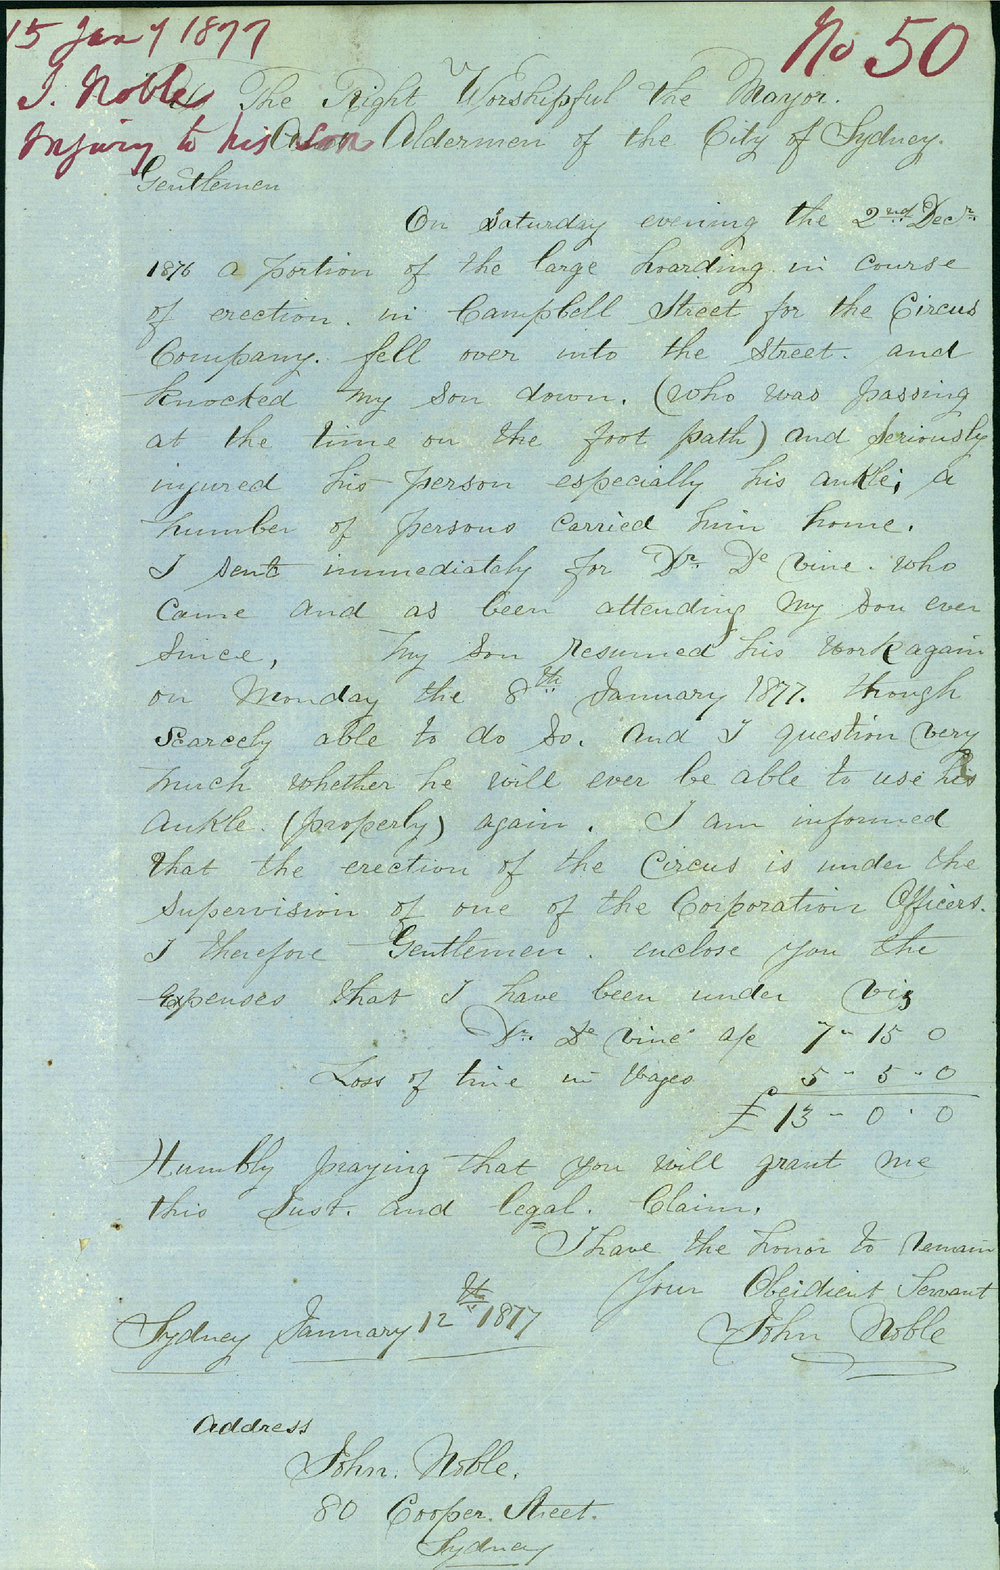 15 Jany 1877
No 50
J. Noble
Injury to his son
To The Right Worshipful the Mayor.
And Aldermen of the City of Sydney.
Gentlemen
On Saturday evening the 2nd Decr.
1876 a portion of the large hoarding in course
of erection. in Campbell Street for the Circus
Company. fell over into the Street. and
knocked my son down. (who was passing
at the time on the foot path) and seriously
injured his person especially his ankle; a
number of persons carried him home.
I sent immediately for Dr. De vine. who
came and as been attending my son ever
since, My son resumed his work again
on Monday the 8th January 1877. though
scarcely able to do so. and I question very
much whether he will ever be able to use his
ankle. (properly) again. I am informed
that the erection of the Circus is under the
supervision of one of the Corporation Officers.
I therefore Gentlemen. enclose you the
expenses that I have been under viz
Dr. De vine a/c 7 - 15 0
Loss of time in Wages 5 - 5 - 0
£ 13 - 0 - 0
Humbly praying that you will grant me
this Just. and legal. Claim.
I have the honor to remain
Your Obeidient Servant
Sydney January 12th 1877
John Noble
Address
John. Noble.
80 Cooper. Street.
Sydney